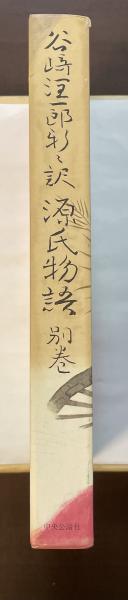 谷崎潤一郎新々訳
源氏物語
別巻
中央公論社